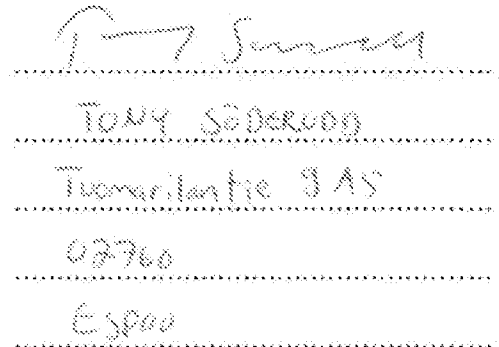 TONY SÖDERUDD
Tuomarilantie 9 A5
02760
Espoo